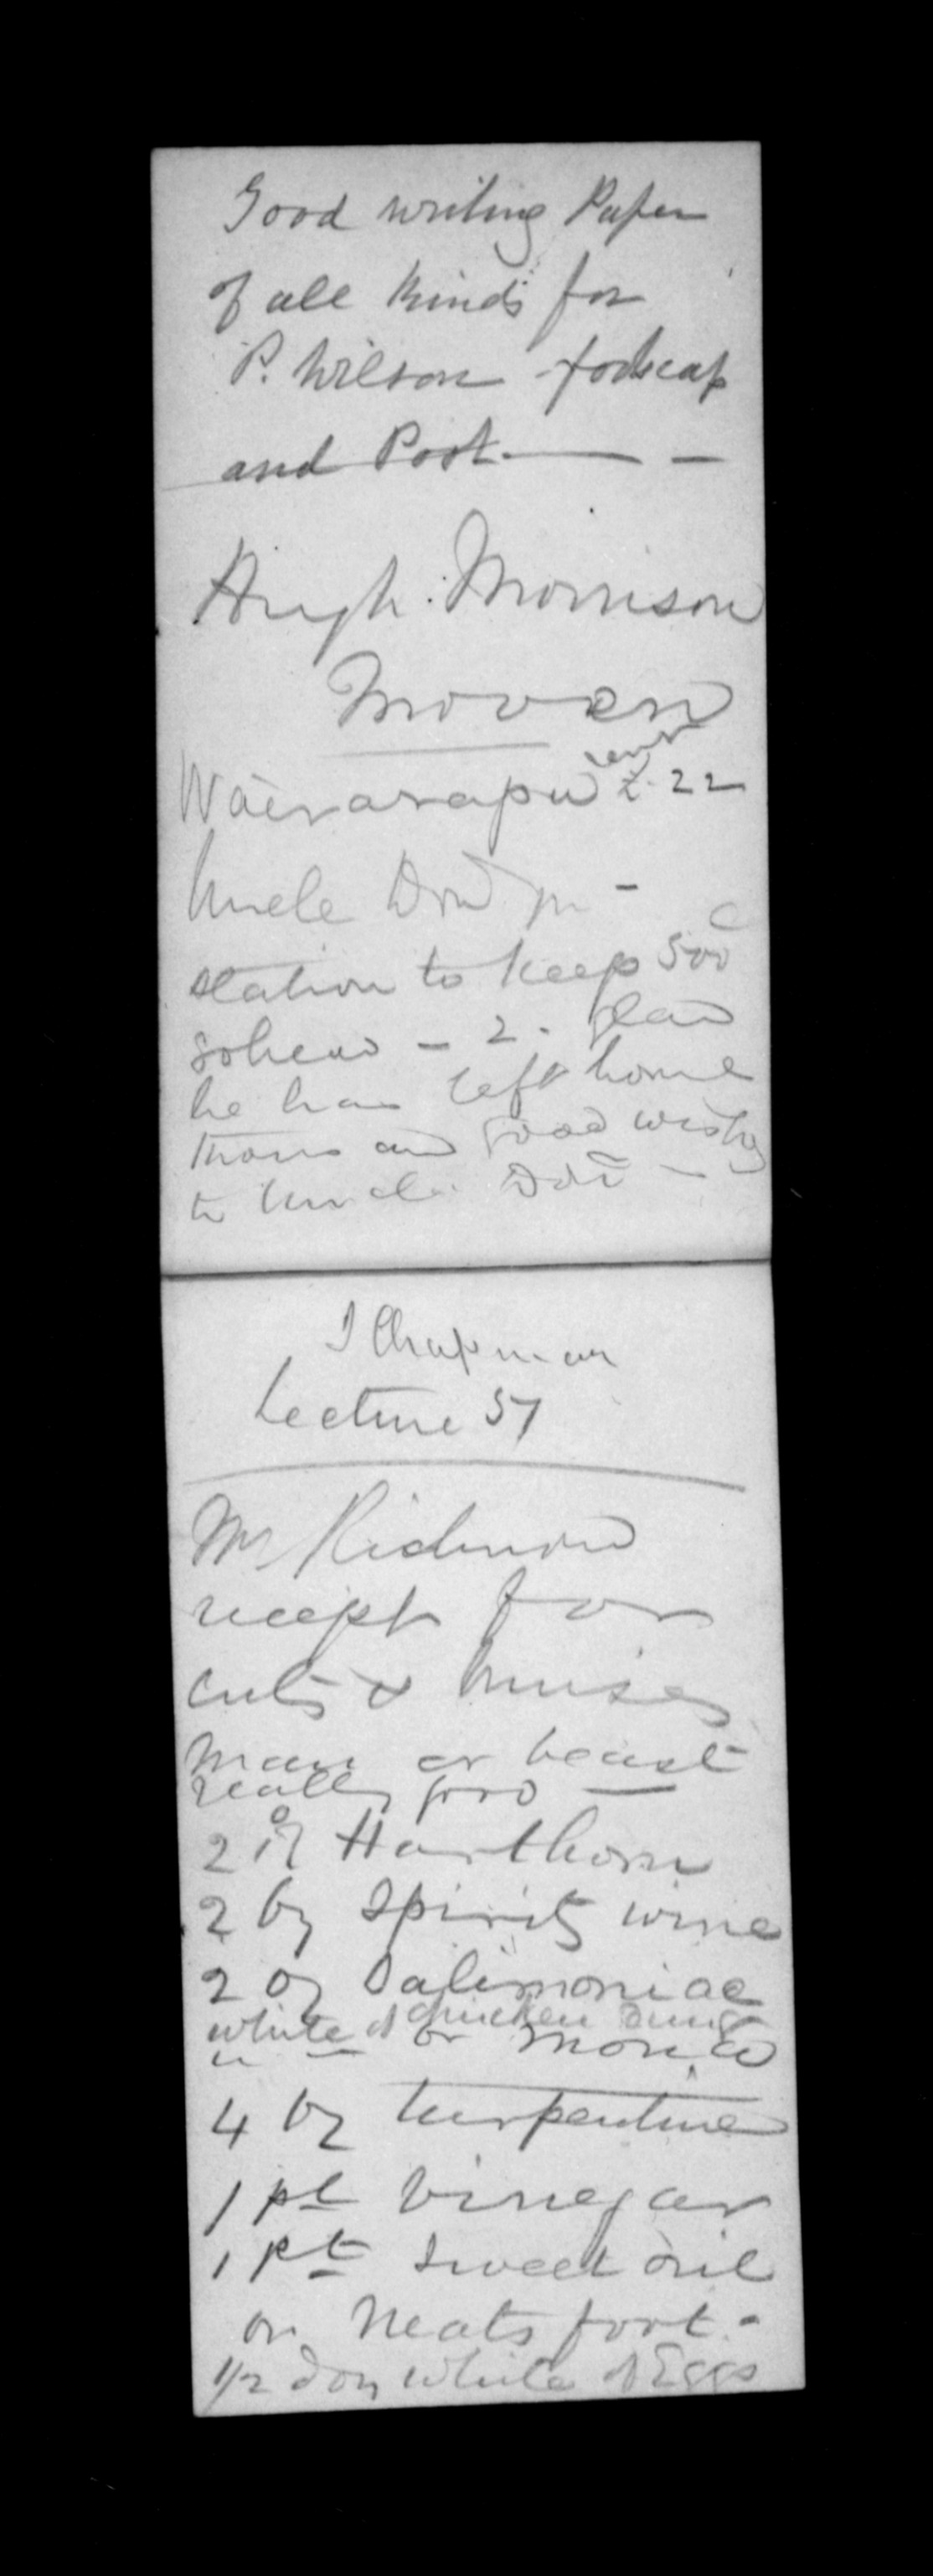 Good writing Paper
of all kinds for
P. Wilson foolscap
and Post
Hugh Morrison
Morven
Wairarapa 22
Uncle Don
station to keep 500
2. glad
he has left home
and good wishes
to Uncle Don
J Chapman
Lecture 57
Mr Richmond
recept for
cuts & bruises
man or beast
really good
2 oz Harthorn
2 oz Spirits wine
2 oz Salimoniac
white of chicken dung
or
4 oz turpentine
1 pt vinegar
1 pt sweet oil
or Neats foot
1/2 doz white of Eggs